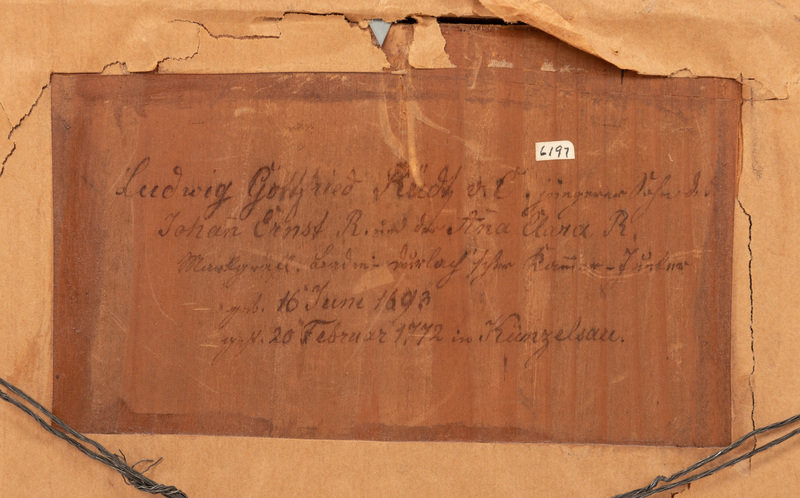 6197
Ludwig Gottfried Rüdt v. C. jüngerer Sohn des
Johan̄ Ernst R. und der An̄a Clara R.
Markgräfl. Baden-Durlach'scher Kam̄er-Junker
geb. 16 Juni 1693
gest. 20 Februar 1772 in Künzelsau.